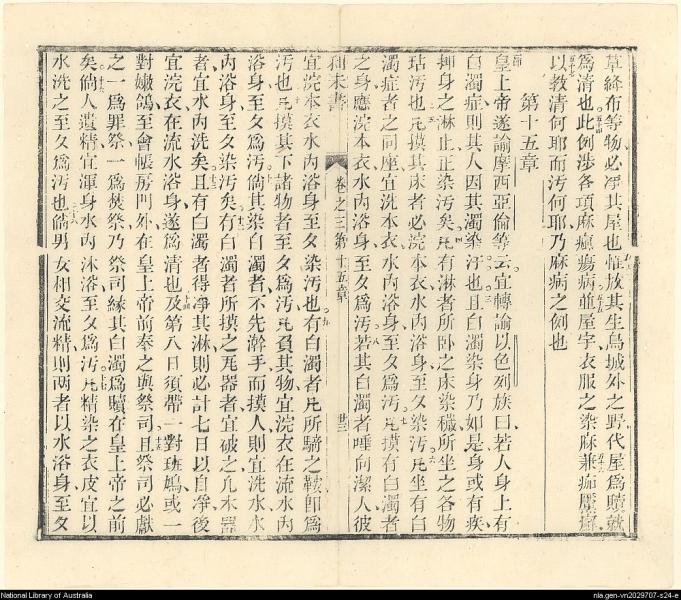 草絳布等物必凈其屋也惟放其生鳥城外之野代屋爲贖就
爲清也此例涉各項麻瘋瘍病並屋宇衣服之染麻兼疿靨癬
以教清何耶而汚何耶乃麻病之例也
第十五章
皇上帝遂諭摩西亞倫等云宜轉諭以色列族曰若人身上有
白濁症則其人因其濁染汚也且白濁染身乃如是身或有疾
身之淋止正染汚矣凡有淋者所臥之床染穢所坐之各物
玷汚也凡摸其床者必浣本衣水內浴身至夕染汚凡坐有白
濁症者之同座宜洗本衣水內浴身至夕爲汚凡摸有白濁者
之身應浣本衣水內浴身至夕爲汚若其白濁者唾向潔人彼
利未書 卷之三第十五章 廿三
宜浣本衣水內浴身至夕染汚也有白濁者凡所騎之鞍卽爲
汚也凡摸其下諸物者至夕爲汚凡負其物宜浣衣在流水內
浴身至夕爲汚倘其染白濁者不先澣手而摸人則宜洗水
內浴身至夕染汚矣有白濁者所摸之瓦器者宜破之凡木器
者宜水內洗矣且有白濁者得凈其淋則必計七日以自凈後
宜浣衣在流水浴身遂爲清也及第八日須帶一對班鳩或一
對嫩鴿至會帳房門外在皇上帝前奉之與祭司且祭司必獻
之一爲罪祭一爲祭乃祭司緣其白濁爲贖在皇上帝之前
矣倘人遺精宜渾身水內沐浴至夕爲汚凡精染之衣皮宜以
水洗之至夕爲汚也倘男女相交流精則兩者以水浴身至夕
National Library of Australia
nla.gen-vn2029707-s24-e